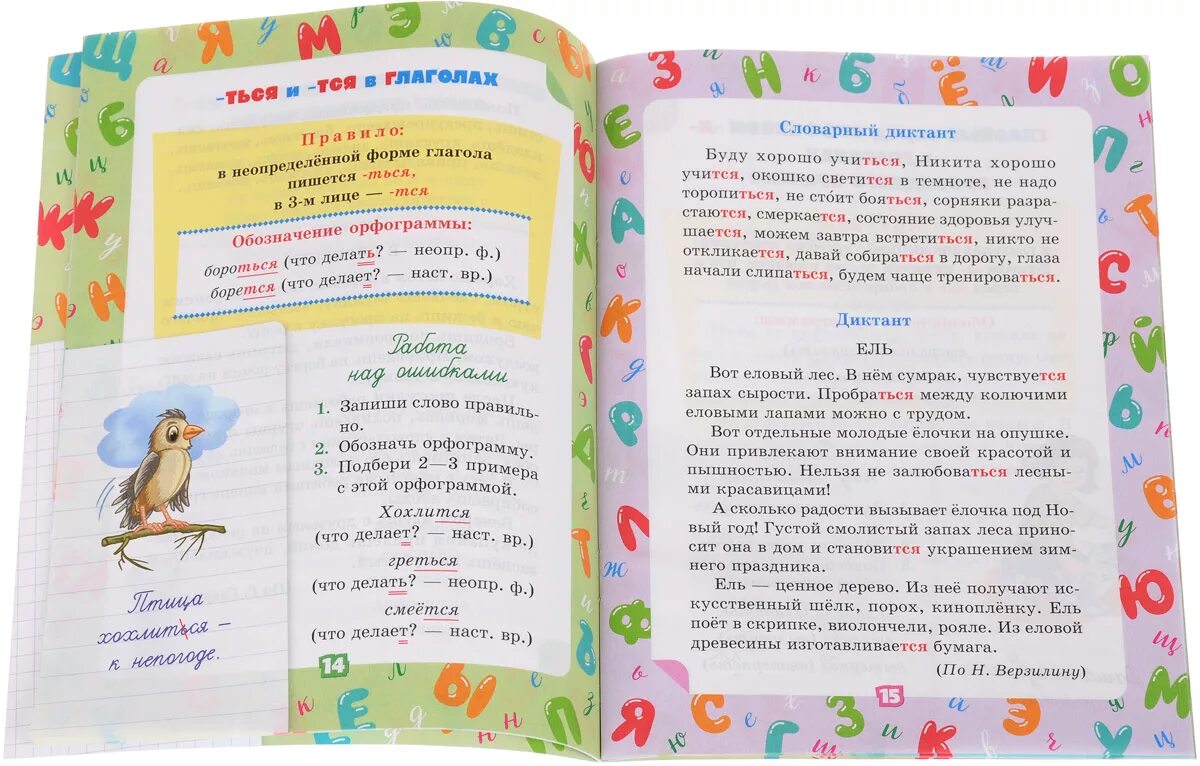 -ТЬСЯ и -ТСЯ в ГЛАГОЛАХ
Правило:
в неопределённой форме глагола
пишется -ться,
в 3-м лице — -тся
Обозначение орфограммы:
бороться (что делать? — неопр. ф.)
борется (что делает? — наст. вр.)
Работа
над ошибками
1. Запиши слово правиль-
но.
2. Обозначь орфограмму.
3. Подбери 2—3 примера
с этой орфограммой.
Хохлится
(что делает? — наст. вр.)
греться
(что делать? — неопр. ф.)
смеётся
(что делает? — наст. вр.)
Птица
хохлиться —
к непогоде.
14
Словарный диктант
Буду хорошо учиться, Никита хорошо
учится, окошко светится в темноте, не надо
торопиться, не сто́ит бояться, сорняки разра-
стаются, смеркается, состояние здоровья улуч-
шается, можем завтра встретиться, никто не
откликается, давай собираться в дорогу, глаза
начали слипаться, будем чаще тренироваться.
Диктант
ЕЛЬ
Вот еловый лес. В нём сумрак, чувствуется
запах сырости. Пробраться между колючими
еловыми лапами можно с трудом.
Вот отдельные молодые ёлочки на опушке.
Они привлекают внимание своей красотой и
пышностью. Нельзя не залюбоваться лесны-
ми красавицами!
А сколько радости вызывает ёлочка под Но-
вый год! Густой смолистый запах леса прино-
сит она в дом и становится украшением зим-
него праздника.
Ель — ценное дерево. Из неё получают ис-
кусственный шёлк, порох, киноплёнку. Ель
поёт в скрипке, виолончели, рояле. Из еловой
древесины изготавливается бумага.
(По Н. Верзилину)
15